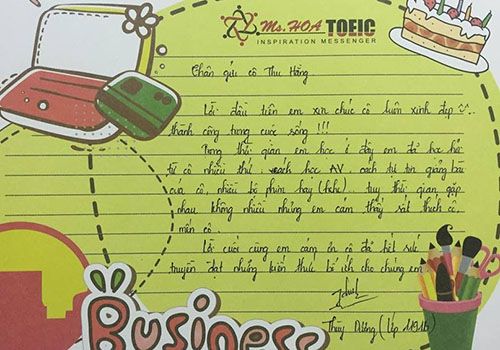 Ms. HOA TOEIC
INSPIRATION MESSENGER
Thân gửi cô Thu Hằng
Lời đầu tiên em xin chúc cô luôn xinh đẹp
thành công trong cuộc sống !!!
Trong thời gian em học ở đây em đã học hỏi
từ cô nhiều thứ, cách học AV, cách tự tin giảng bài
của cô, nhiều bộ phim hay (hehe). tuy thời gian gặp
nhau không nhiều nhưng em cảm thấy rất thích cô,
mến cô.
Lời cuối cùng em cảm ơn cô đã hết sức
truyền đạt những kiến thức bổ ích cho chúng em
Thùy Dương (Lớp
Business